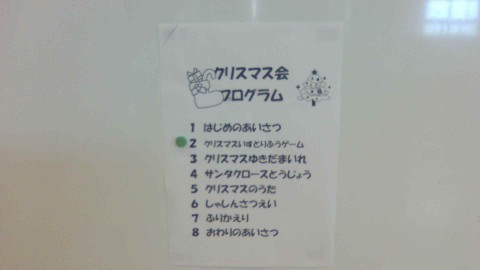 クリスマス会
プログラム
1 はじめのあいさつ
2 クリスマスいすとりふうゲーム
3 クリスマスゆきだまいれ
4 サンタクロースとうじょう
5 クリスマスのうた
6 しゃしんさつえい
7 ふりかえり
8 おわりのあいさつ